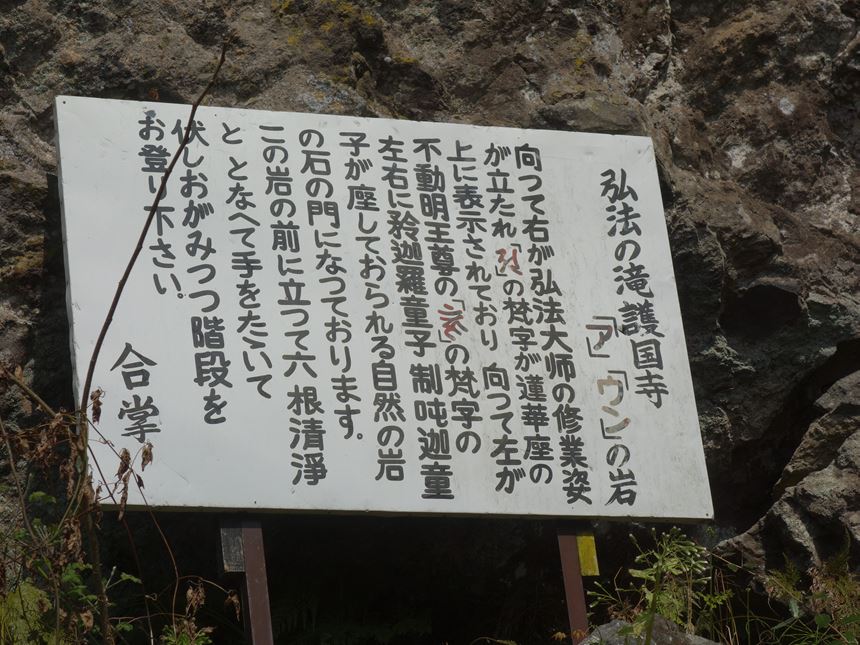 弘法の滝護国寺
「ア」「ウン」の岩
向つて右が弘法大師の修業姿
が立たれ「」の梵字が蓮華座の
上に表示されており 向つて左が
不動明王尊の「」の梵字の
左右に矜迦羅童子 制吨迦童
子が座しておられる自然の岩
の石の門になつております。
この岩の前に立つて六根清淨
と となへて手をたゝいて
伏しおがみつつ階段を
お登り下さい。
合掌